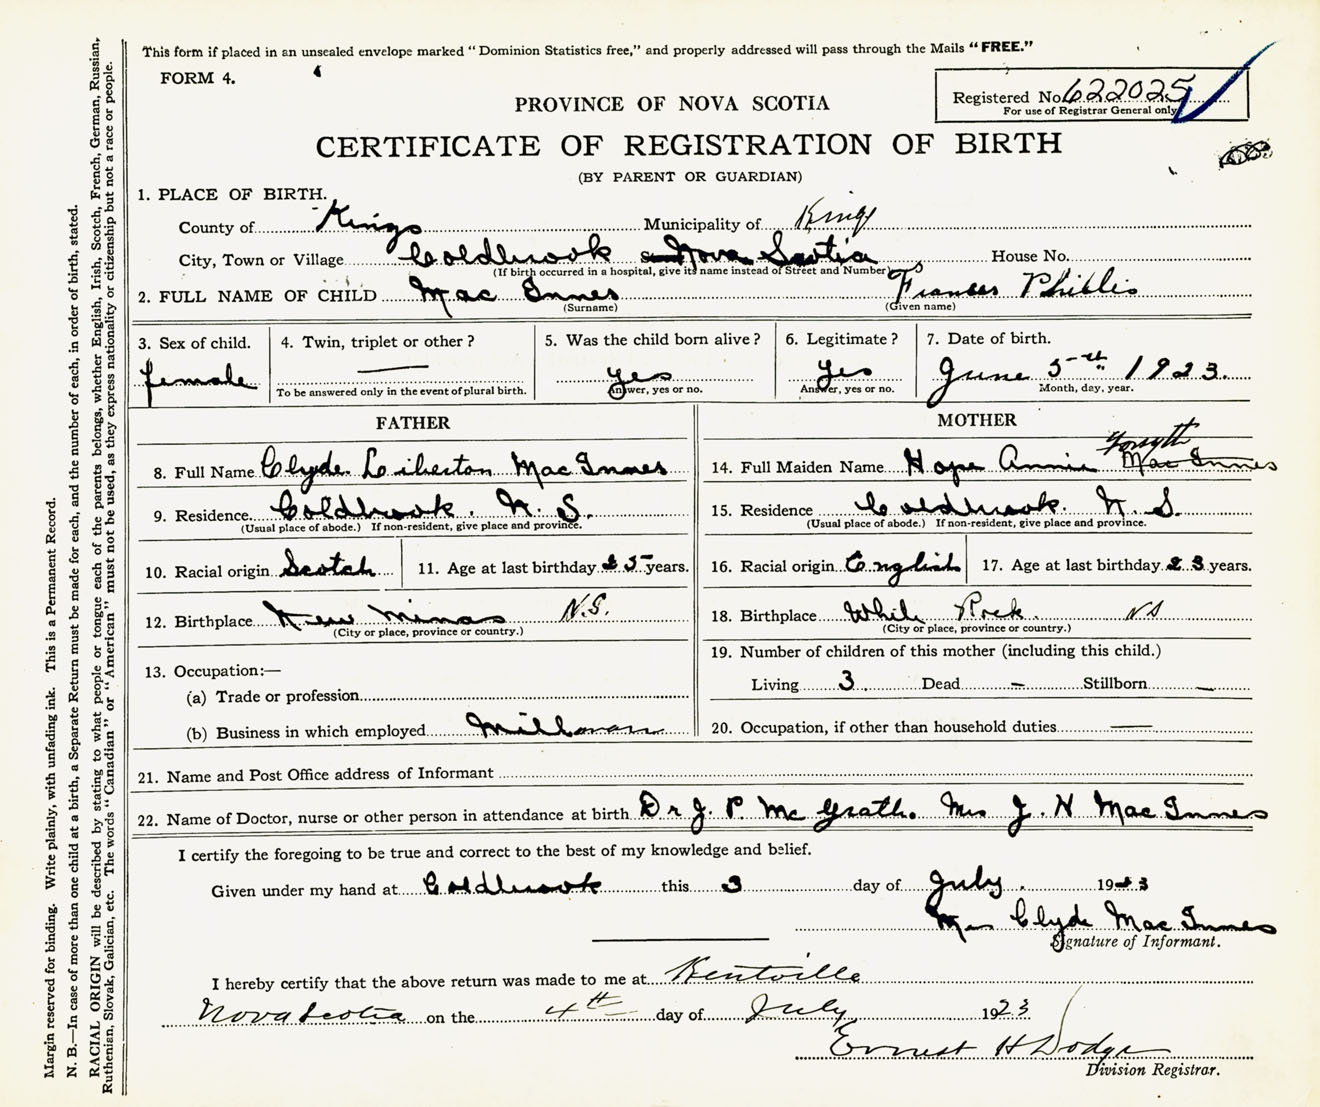 This form if placed in an unsealed envelope marked "Dominion Statistics free," and properly addressed will pass through the Mails "FREE."
FORM 4.
Registered No. 622025
For use of Registrar General only
PROVINCE OF NOVA SCOTIA
CERTIFICATE OF REGISTRATION OF BIRTH
(BY PARENT OR GUARDIAN)
1. PLACE OF BIRTH.
County of Kings Municipality of Kings
City, Town or Village Coldbrook Nova Scotia House No.
(If birth occurred in a hospital, give its name instead of Street and Number)
2. FULL NAME OF CHILD Mac Innes Frances Phillis
(Surname) (Given name)
3. Sex of child. 4. Twin, triplet or other? 5. Was the child born alive? 6. Legitimate? 7. Date of birth.
female — yes yes June 5th 1923.
To be answered only in the event of plural birth. Answer, yes or no. Answer, yes or no. Month, day, year.
FATHER
8. Full Name Clyde Liberton Mac Innes
9. Residence Coldbrook. N. S.
(Usual place of abode.) If non-resident, give place and province.
10. Racial origin Scotch 11. Age at last birthday 25 years.
12. Birthplace New Minas N.S.
(City or place, province or country.)
13. Occupation:—
(a) Trade or profession
(b) Business in which employed Millman
MOTHER
14. Full Maiden Name Hope Annie Mac Innes Forsyth
15. Residence Coldbrook. N. S.
(Usual place of abode.) If non-resident, give place and province.
16. Racial origin English 17. Age at last birthday 23 years.
18. Birthplace White Rock. NS
(City or place, province or country.)
19. Number of children of this mother (including this child.)
Living 3. Dead — Stillborn —
20. Occupation, if other than household duties —
21. Name and Post Office address of Informant
22. Name of Doctor, nurse or other person in attendance at birth Dr J. P. Mc Grath. Mrs J. H Mac Innes
I certify the foregoing to be true and correct to the best of my knowledge and belief.
Given under my hand at Coldbrook this 3 day of July. 1923
Mrs Clyde Mac Innes
Signature of Informant.
I hereby certify that the above return was made to me at Kentville
Nova Scotia on the 4th day of July 1923
Ernest H Dodge
Division Registrar.
Margin reserved for binding. Write plainly, with unfading ink. This is a Permanent Record.
N. B.—In case of more than one child at a birth, a Separate Return must be made for each, and the number of each, in order of birth, stated.
RACIAL ORIGIN will be described by stating to what people or tongue each of the parents belongs, whether English, Irish, Scotch, French, German, Russian,
Ruthenian, Slovak, Galician, etc. The words "Canadian" or "American" must not be used, as they express nationality or citizenship but not a race or people.